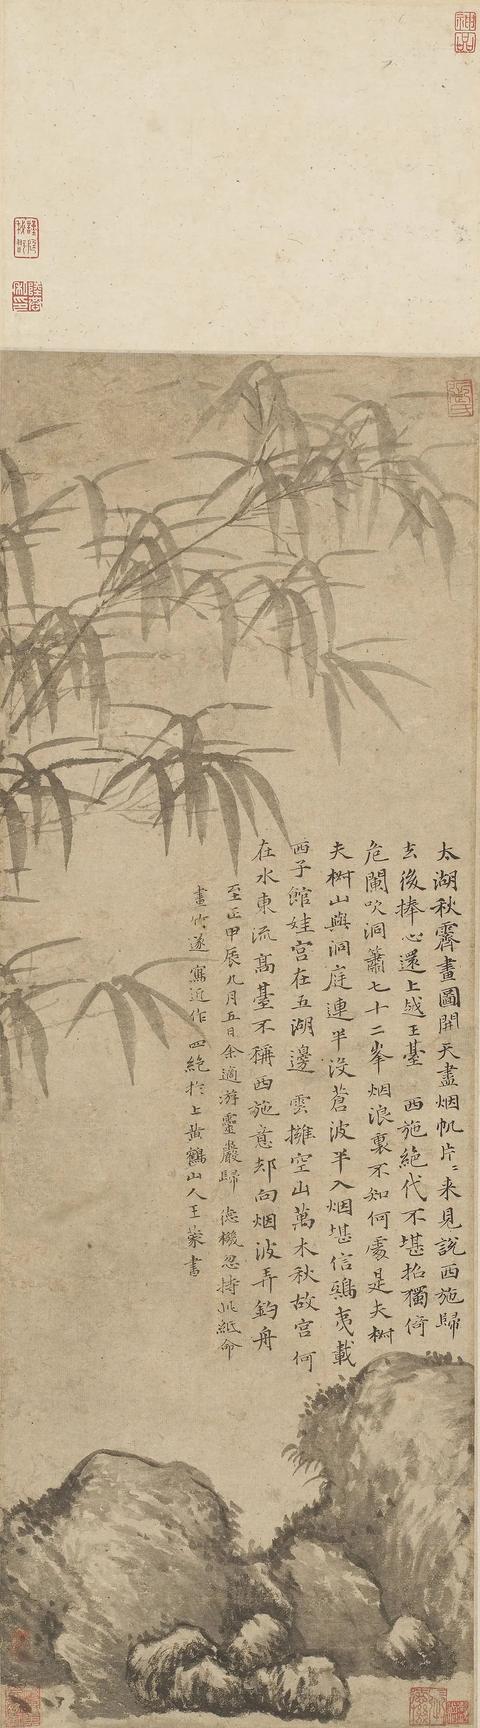 太湖秋霽畫圖開天盡烟帆片〻来見說西施歸
去後捧心還上越王臺　西施絕代不堪招獨倚
危闌吹洞簫七十二峯烟浪裏不知何處是夫樹
夫樹山與洞庭連半没蒼波半入烟堪信鴟夷載
西子館娃宫在五湖邊　雲擁空山萬木秋故宫何
在水東流高臺不稱西施意却向烟波弄釣舟
至正甲辰九月五日余適游靈巖歸　德機忽持此紙命
畫竹遂寫近作四絕於上黄鶴山人王蒙書
神品